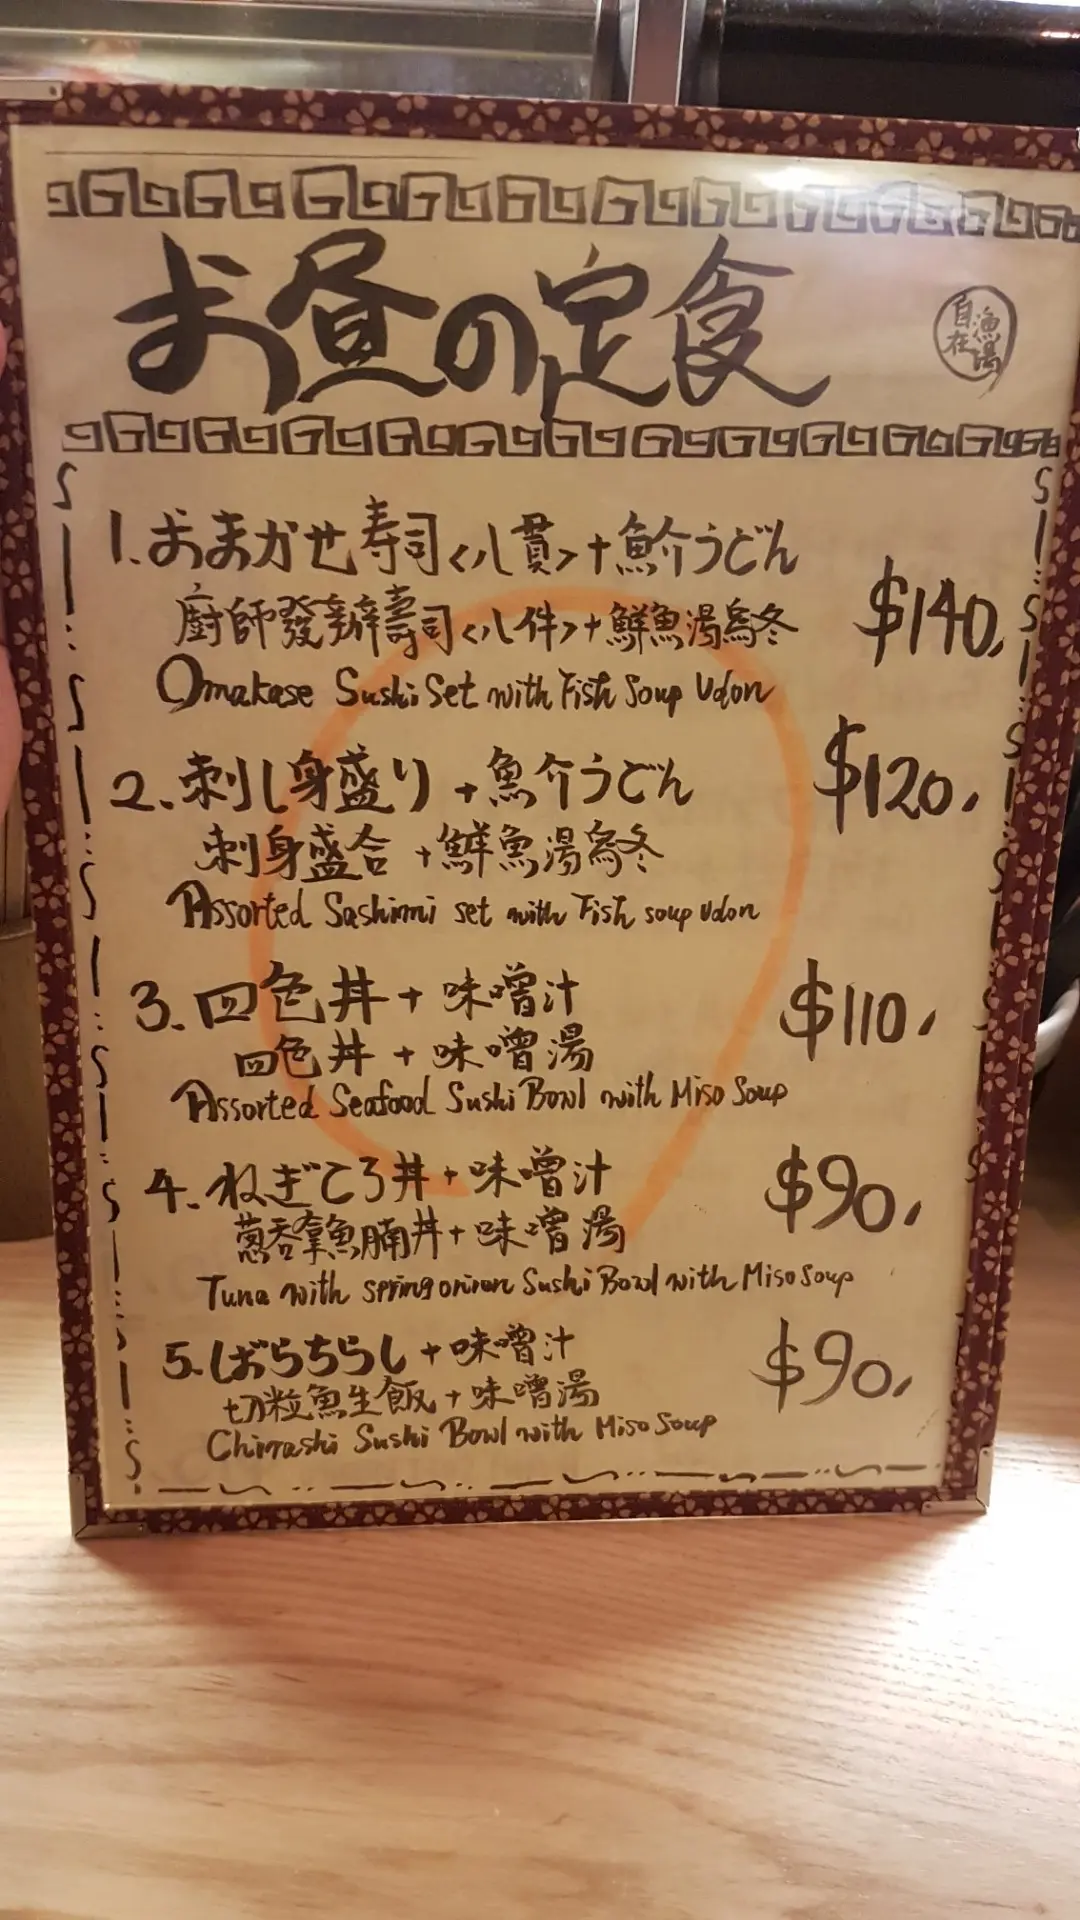 お昼の定食
自在
漁場
1. おまかせ寿司<八貫>+魚介うどん
廚師發辦壽司<八件>+鮮魚湯烏冬
$140.
Omakase Sushi Set with Fish Soup Udon
2. 刺し身盛り+魚介うどん
$120.
刺身盛合+鮮魚湯烏冬
Assorted Sashimi set with Fish soup udon
3. 四色丼+味噌汁
$110.
四色丼+味噌湯
Assorted Seafood Sushi Bowl with Miso Soup
4. ねぎとろ丼+味噌汁
$90.
蔥吞拿魚腩丼+味噌湯
Tuna with spring onion Sushi Bowl with Miso Soup
5. ばらちらし+味噌汁
$90.
切粒魚生飯+味噌湯
Chirrashi Sushi Bowl with Miso Soup